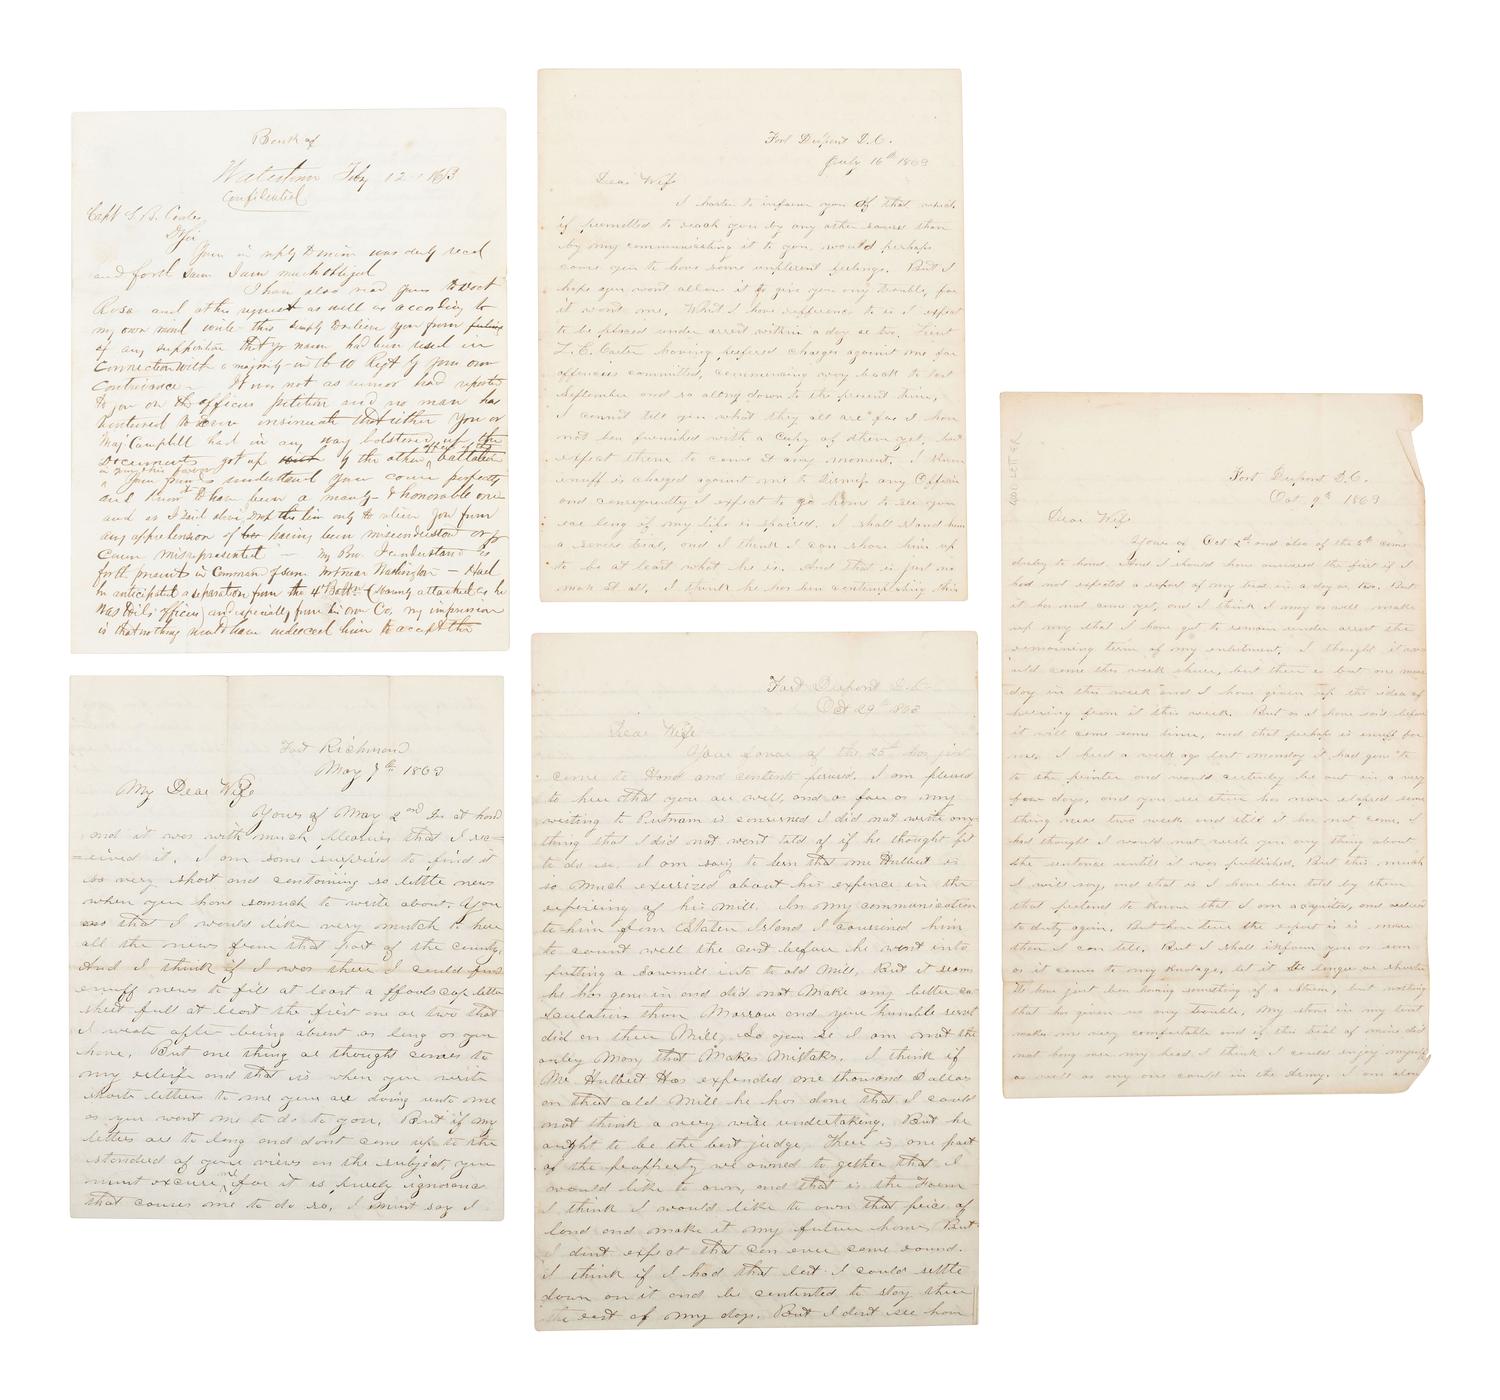 Bank of
Watertown Feby 12 1863
Confidential
Capt S. B.
D Sir
Yours in reply was duly recd
and forth I am much obliged
I have also read yours to
Rosa and at his request as well as according to
my own mind write this simply to relieve you from feeling
of any supposition that yr name had been used in
Connection with a majority in the 10 Regt by your own
Contrivance. It was not as rumor had reported
to you on the officers petition and no man has
ventured to even insinuate that either you or
Maj Campbell had in any way bolstered up the
Documents got up by the other battalion
understand your course perfectly
and to have been a manly & honorable one
and as I said above drop this line only to relieve you from
any apprehension of having been misunderstood or yr
Course misrepresented — my Bro. I understand is
for the present in Command of some near Washington — Had
he anticipated a separation from the 4 Batt. (strongly attached as he
was to its officers) and especially from his own Co, my impression
is that nothing would have induced him to accept the
Fort Dupont D.C.
July 16th 1863
Dear Wife
I hasten to inform you of that which
if permitted to reach you by any other source than
by my communicating it to you, would perhaps
cause you to have some unpleasant feelings. But I
hope you wont allow it to give you any trouble, for
it wont me. What I have refference to is I expect
to be placed under arrest within a day or two. Lieut
L. E. Carter having prefered charges against me for
offences committed, commencing way back to last
September and so along down to the present time,
I cannot tell you what they all are for I have
not been furnished with a Copy of them yet, but
expect them to come at any moment.
enuff is charged against me to dismiss any Officer
and consequently I expect to go home to see you
ere long if my life is spaired. I shall stand him
a severe trial, and I think I can show him up
to be at least what he is. And that is just no
man at all, I think he has been contemplating this
Fort Richmond
May 7th 1863
My Dear Wife
Yours of May 2nd is at hand
and it was with much pleasure that I rec-
eived it. I am some surprised to find it
so very short and containing so little news
when you have so much to write about. You
know that I would like very much to hear
all the news from that part of the country.
And I think if I was there I could find
enuff news to fill at least a ffools cap letter
sheet full at least the first one or two that
I wrote after being absent as long as you
have. But one thing as thought comes to
my releife and that is when you write
short letters to me you are doing unto me
as you want me to do to you. But if my
letters are to long and dont come up to the
standard of your views on the subject, you
must excuse me for it is purely ignorance
that causes me to do so, I must say I
Fort Dupont D.C.
Oct 29th 1863
Dear Wife
Your favor of the 25th has just
come to Hand and contents perused. I am pleased
to hear that you are well, and as far as my
writing to Putnam is concerned I did not write any
thing that I did not want told of if he thought fit
to do so. I am sorry to learn that Mr Hulbert is
so much exersized about his expence in the
repairing of his mill. In my communication
to him from Staten Island I councined him
to count well the cost before he went into
putting a sawmill into to old Mill, But it seems
he has gone in and did not make any better ca-
lculation than Morrow and your humble servt
did on their Mill, So you se I am not the
onley Man that Makes Mistaks. I think if
Mr Hulbert Has expended one thousand Dollars
on that old Mill he has done that I could
not think a very wise undertaking. But he
ought to be the best judge, There is one part
of the propperty we owned to gether that I
would like to own, and that is the Farm
I think I would like to own that peice of
land and make it my future home, But
I dont expect that can ever come round.
I think if I had that lot I could settle
down on it and be contented to stay there
the rest of my days. But I dont see how
Fort Dupont D.C.
Oct 9th 1863
Dear Wife
Yours of Oct 2nd and also of the 5th came
duley to hand. And I should have answered the first if I
had not expected a report of my trial in a day or two. But
it has not come yet, and I think I may as well make
up my that I have got to remain under arrest the
remaining term of my enlistment. I thought it wo-
uld come this week shure, but there is but one more
day in this week and I have given up the idea of
hearing from it this week. But as I have said before
it will come some time, and that perhaps is enuff for
me. I heard a week ago last monday it had gon to
to the printer and would certainly be out in a very
few days, and you see there has now elapsed some
thing near two week and still it has not come. I
had thought I would not write you any thing about
the sentence untill it was published. But this much
I will say, and that is I have been told by them
that pretend to know that I am acquited, and ordered
to duty again. But how true the report is is more
than I can tell. But I shall inform you as soon
as it comes to my knolage, let it be longer or shorter
We have just ben having something of a storm, but nothing
that has given us any trouble, My stove in my tent
makes me very comfortable and if this trial of mine did
not hang over my head I think I could enjoy myself
as well as any one could in the Army. I am also